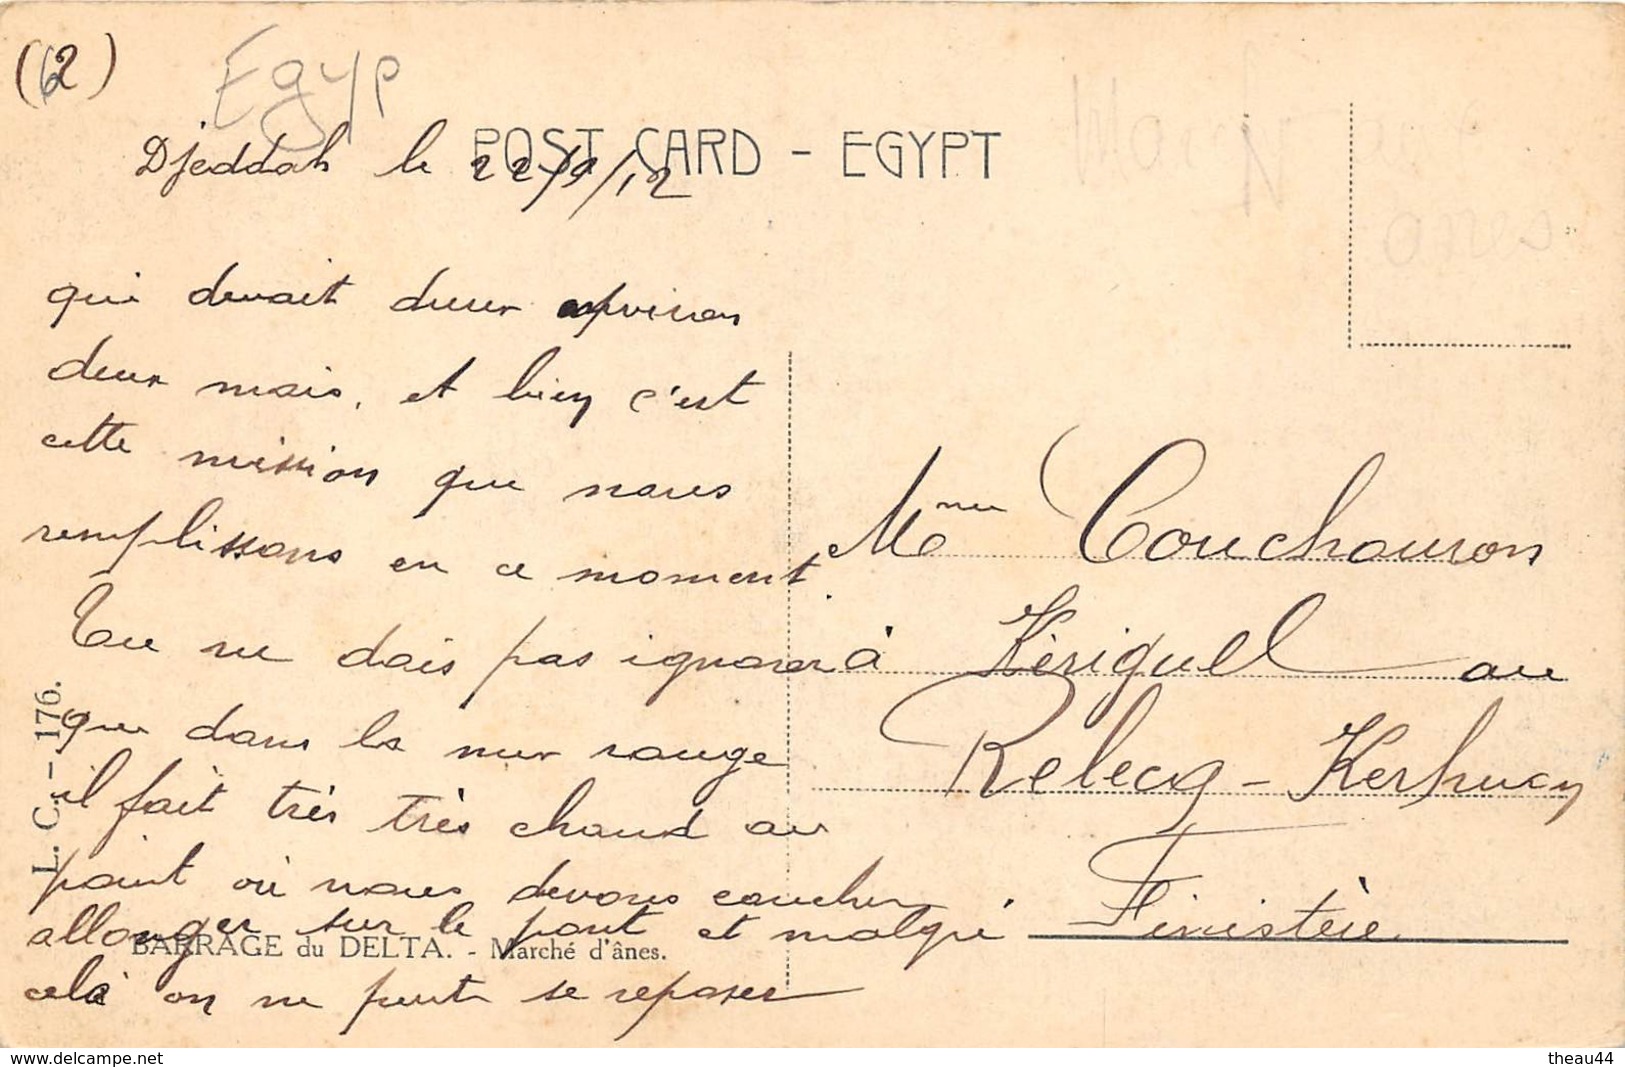 (2)
Egyp
POST CARD - EGYPT
Djeddah le 22/9/12
qui devait durer environ
deux mois, et bien c'est
cette mission que nous
remplissons en ce moment.
Tu ne dois pas ignorer
que dans la mer rouge
il fait très très chaud au
point où nous devons coucher
allonger sur le pont et malgré
celà on ne peut se reposer
Mme Couchouron
à Kériguel au
Relecq-Kerhuon
Finistère
anes
L. C. - 176.
BARRAGE du DELTA. - Marché d'ânes.
www.delcampe.net
theau44